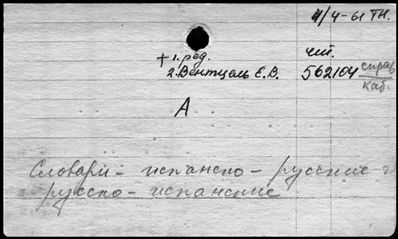 4/4-61 ТН.
+ 1. ред. чит.
2. Вентцель Е.В. 562104 справ
каб.
А
Словари - испанско - русские
русско - испанские